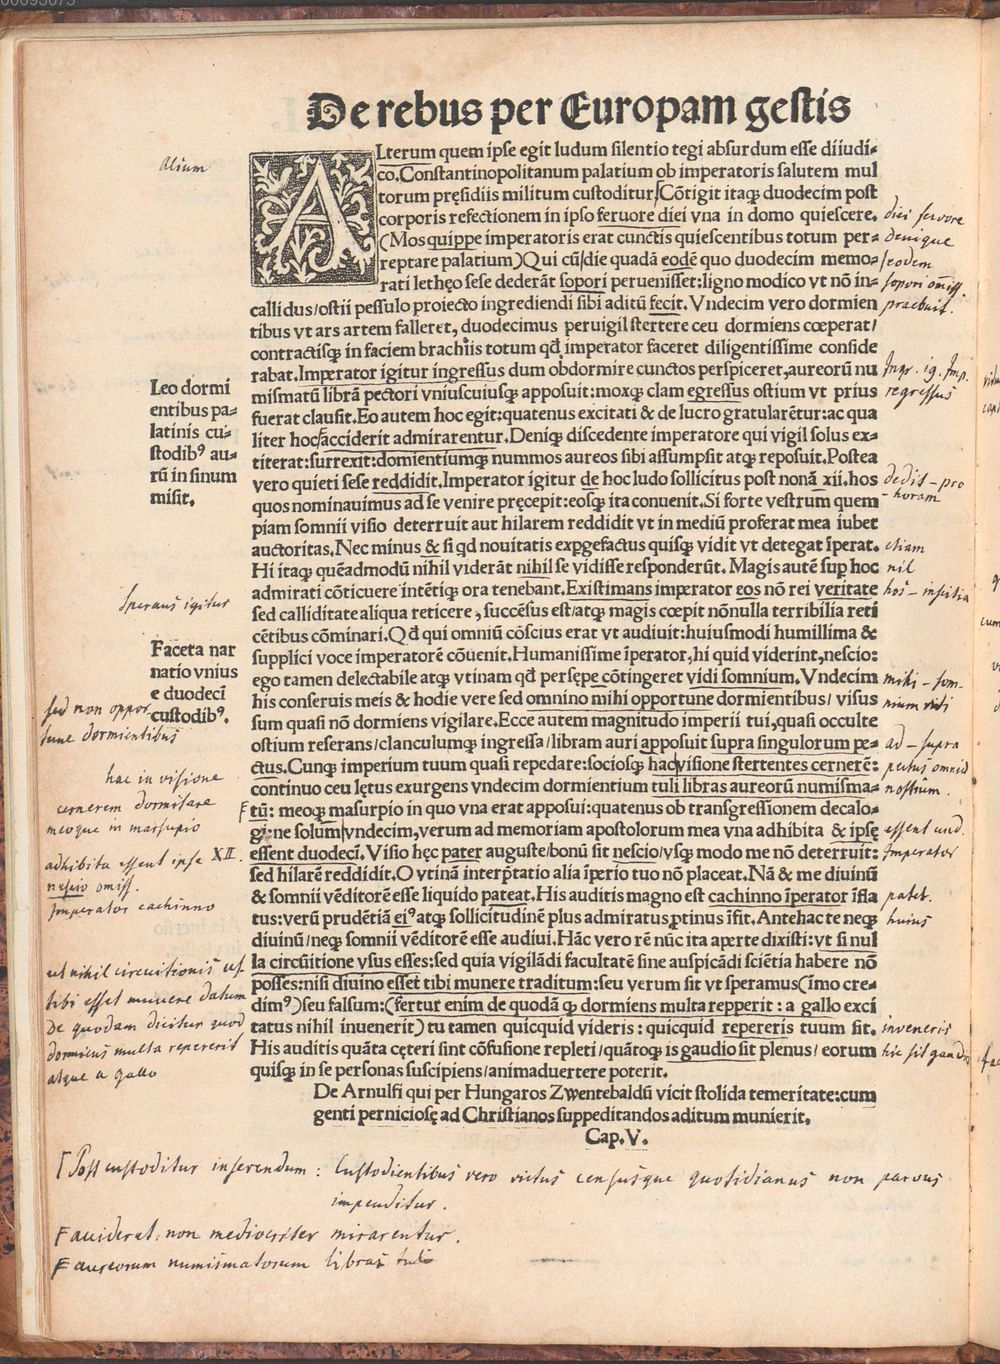 De rebus per Europam gestis
alium
ALterum quem ipse egit ludum silentio tegi absurdum esse diiudi⸗
co. Constantinopolitanum palatium ob imperatoris salutem mul
torum pręsidiis militum custoditur/ Cōtigit itaq̃ duodecim post
corporis refectionem in ipso feruore diei vna in domo quiescere.
diei fervore
(Mos quippe imperatoris erat cunctis quiescentibus totum per⸗
denique
reptare palatium) Qui cū/die quadā eodē quo duodecim memo⸗
eodem
rati lethęo sese dederāt sopori peruenisset: ligno modico vt nō in⸗
sopori omiss.
callidus/ostii pessulo proiecto ingrediendi sibi aditū fecit. Vndecim vero dormien
praebuit.
tibus vt ars artem falleret, duodecimus peruigil stertere ceu dormiens cœperat/
contractisq̃ in faciem brachiis totum qđ imperator faceret diligentissime conside
rabat. Imperator igitur ingressus dum obdormire cunctos perspiceret, aureorū nu
Impr. ig. Imp.
mismatū librā pectori vniuscuiusq̃ apposuit: moxq̃ clam egressus ostium vt prius
regressus
Leo dormi
entibus pa⸗
latinis cu⸗
stodibꝰ au⸗
rū in sinum
misit.
fuerat clausit. Eo autem hoc egit: quatenus excitati & de lucro gratularētur: ac qua
liter hoc/acciderit admirarentur. Deniq̃ discedente imperatore qui vigil solus ex⸗
titerat: surrexit: domientiumq̃ nummos aureos sibi assumpsit atq̃ reposuit. Postea
vero quieti sese reddidit. Imperator igitur de hoc ludo sollicitus post nonā xii. hos
dedit – pro
– horam
quos nominauimus ad se venire pręcepit: eosq̃ ita conuenit. Si forte vestrum quem
piam somnii visio deterruit aut hilarem reddidit vt in mediū proferat mea iubet
auctoritas. Nec minus & si qđ nouitatis expgefactus quisq̃ vidit vt detegat īperat.
etiam
Hi itaq̃ quēadmodū nihil viderāt nihil se vidisse responderūt. Magis autē sup hoc
nil
admirati cōticuere intētiq̃ ora tenebant. Existimans imperator eos nō rei veritate
hos – inscitia
Sperans igitur
sed calliditate aliqua reticere, succēsus est/atq̃ magis cœpit nōnulla terribilia reti
cētibus cōminari. Qđ qui omniū cōscius erat vt audiuit: huiusmodi humillima &
supplici voce imperatorē cōuenit. Humanissime īperator, hi quid viderint, nescio:
Faceta nar
natio vnius
e duodecī
custodibꝰ.
ego tamen delectabile atq̃ vtinam qđ persępe cōtingeret vidi somnium. Vndecim
mihi – som-
his conseruis meis & hodie vere sed omnino mihi opportune dormientibus/ visus
nium vidi
sed non oppor
tune dormientibus
sum quasi nō dormiens vigilare. Ecce autem magnitudo imperii tui, quasi occulte
ostium reserans/clanculumq̃ ingressa/libram auri apposuit supra singulorum pe⸗
ad – supra
ctus. Cunq̃ imperium tuum quasi repedare: sociosq̃ hac visione stertentes cernerē:
pectus omniū
hac in visione
cernerem dormitare
meoque in marsupio
continuo ceu lętus exurgens vndecim dormientium tuli libras aureorū numisma⸗
nostrum.
tū: meoq̃ masurpio in quo vna erat apposui: quatenus ob transgressionem decalo⸗
gi: ne solum/vndecim, verum ad memoriam apostolorum mea vna adhibita & ipsę
essent und.
adhibita essent ipse XII.
nescio omiss.
Imperator cachinno
essent duodecī. Visio hęc pater auguste/bonū sit nescio/vsq̃ modo me nō deterruit:
Imperator
sed hilarē reddidit. O vtinā interp̄tatio alia īperio tuo nō placeat. Nā & me diuinū
& somnii vēditorē esse liquido pateat. His auditis magno est cachinno īperator īfla
patet.
tus: verū prudētiā eiꝰ atq̃ sollicitudinē plus admiratus, ptinus īfit. Antehac te neq̃
huius
diuinū/neq̃ somnii vēditorē esse audiui. Hāc vero rē nūc ita aperte dixisti: vt si nul
la circūitione vsus esses: sed quia vigilādi facultatē sine auspicādi sciētia habere nō
ut nihil circuitionis us.
posses: nisi diuino esset tibi munere traditum: seu verum sit vt speramus (īmo cre⸗
tibi esset munere datum
dimꝰ) seu falsum: (fertur enim de quodā q̃ dormiens multa repperit: a gallo exci
de quodam dicitur quod
tatus nihil inuenerit) tu tamen quicquid videris: quicquid repereris tuum sit.
inveneris
dormiens multa repererit
His auditis quāta cęteri sint cōfusione repleti/quātoq̃ is gaudio sit plenus/ eorum
hic sit gaudio
atque a gallo
quisq̃ in se personas suscipiens/animaduertere poterit.
De Arnulfi qui per Hungaros Zwentebaldū vicit stolida temeritate: cum
genti perniciosę ad Christianos suppeditandos aditum munierit.
Cap. V.
Post custoditur inserendum: Custodientibus vero victus censusque quotidianus non parvus
impenditur.
acciderat, non mediocriter mirarentur.
aureorum numismatorum libras tuli